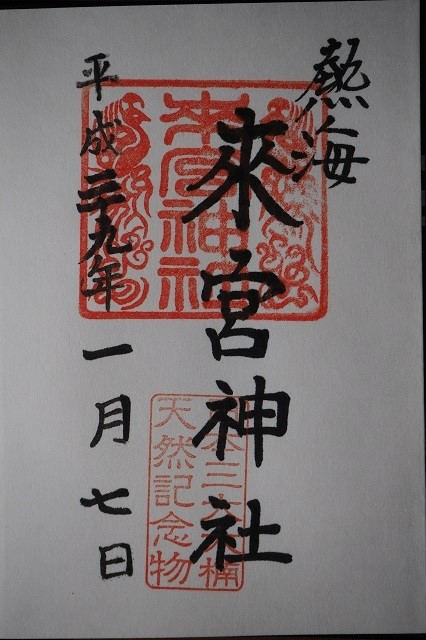 熱海
來宮神社
平成二十九年一月七日
來宮神社
日本三大大楠
天然記念物